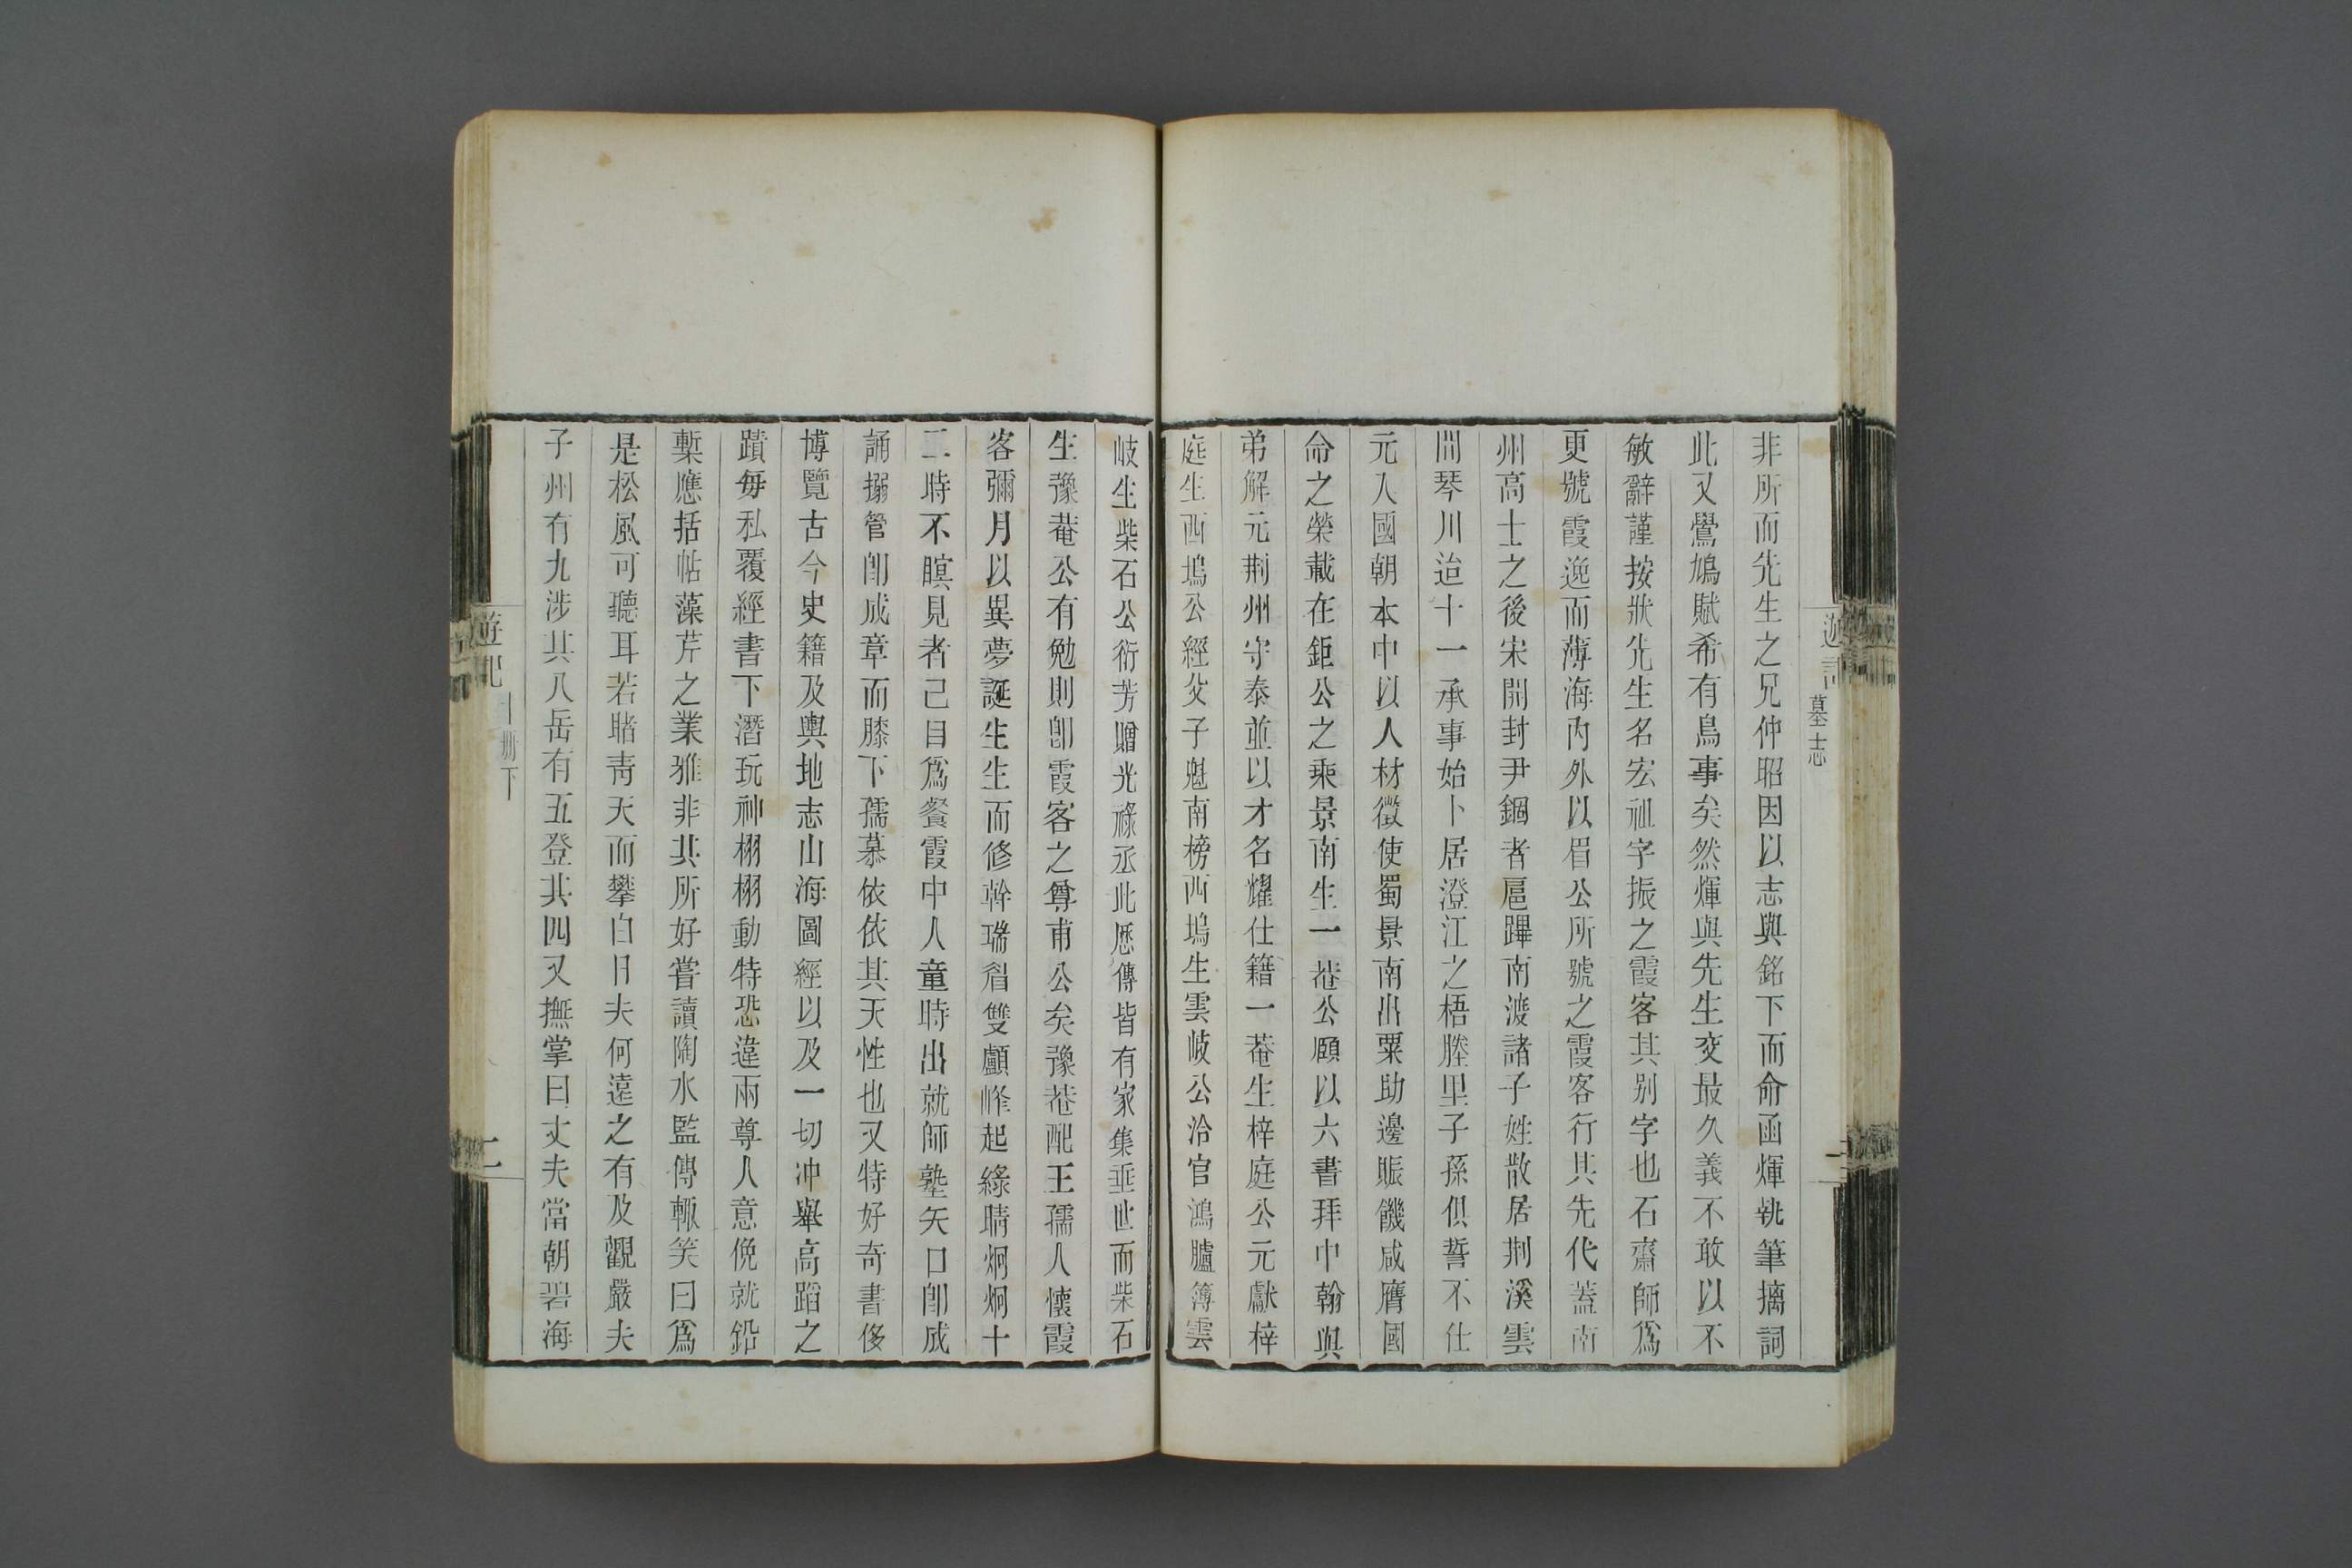 墓志
非所而先生之兄仲昭因以志與銘下而命函煇執筆摛詞
此又鷽鳩賦希有鳥事矣然煇與先生交最久義不敢以不
敏辭謹按狀先生名宏祖字振之霞客其别字也石齋師爲
更號霞逸而薄海内外以眉公所號之霞客行其先代蓋南
州高士之後宋開封尹錮者扈蹕南渡諸子姓散居荆溪雲
間琴川迨十一承事始卜居澄江之梧塍里子孫俱誓不仕
元入國朝本中以人材徵使蜀景南出粟助邊賑饑咸膺國
命之榮載在鉅公之乘景南生一菴公頤以六書拜中翰與
弟解元荆州守泰並以才名耀仕籍一菴生梓庭公元獻梓
庭生西塢公經父子魁南榜西塢生雲岐公洽官鴻臚簿雲
岐生柴石公衍芳贈光祿丞此歷傳皆有家集垂世而柴石
生豫菴公有勉則卽霞客之尊甫公矣豫菴配王孺人懷霞
客彌月以異夢誕生生而修幹瑞眉雙顱峰起綠睛炯炯十
二時不瞑見者已目爲餐霞中人童時出就師塾矢口卽成
誦搦管卽成章而膝下孺慕依依其天性也又特好奇書侈
博覽古今史籍及輿地志山海圖經以及一切冲舉高蹈之
蹟每私覆經書下潛玩神栩栩動特恐違兩尊人意俛就鉛
槧應括帖藻芹之業雅非其所好嘗讀陶水監傳輒笑曰爲
是松風可聽耳若睹靑天而攀白日夫何遠之有及觀嚴夫
子州有九涉其八岳有五登其四又撫掌曰丈夫當朝碧海
遊記
冊下
二